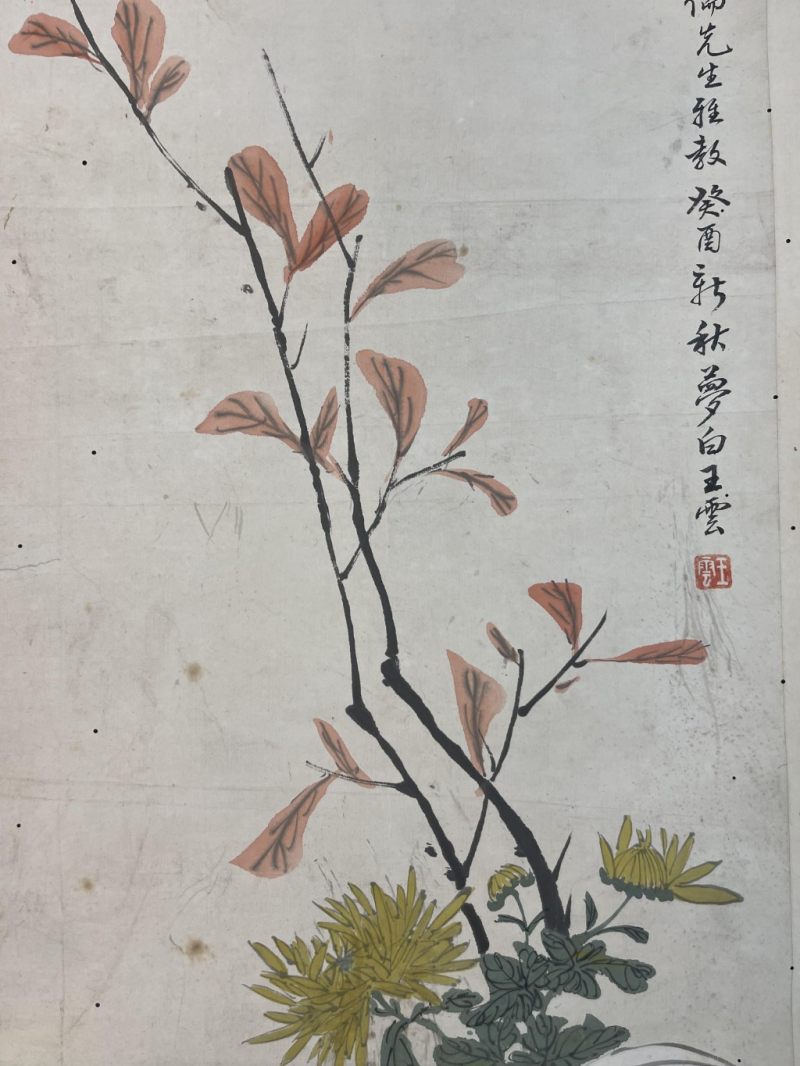 先生雅教癸酉新秋夢白王雲
王雲